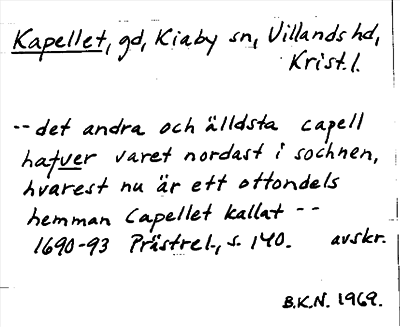 Kapellet, gd, Kiaby sn, Villands hd,
Krist. l.
-- det andra och älldsta capell
hafver varet nordast i sochnen,
hvarest nu är ett ottondels
hemman Capellet kallat --
1690-93 Prästrel., s. 140. avskr.
B.K.N. 1969.